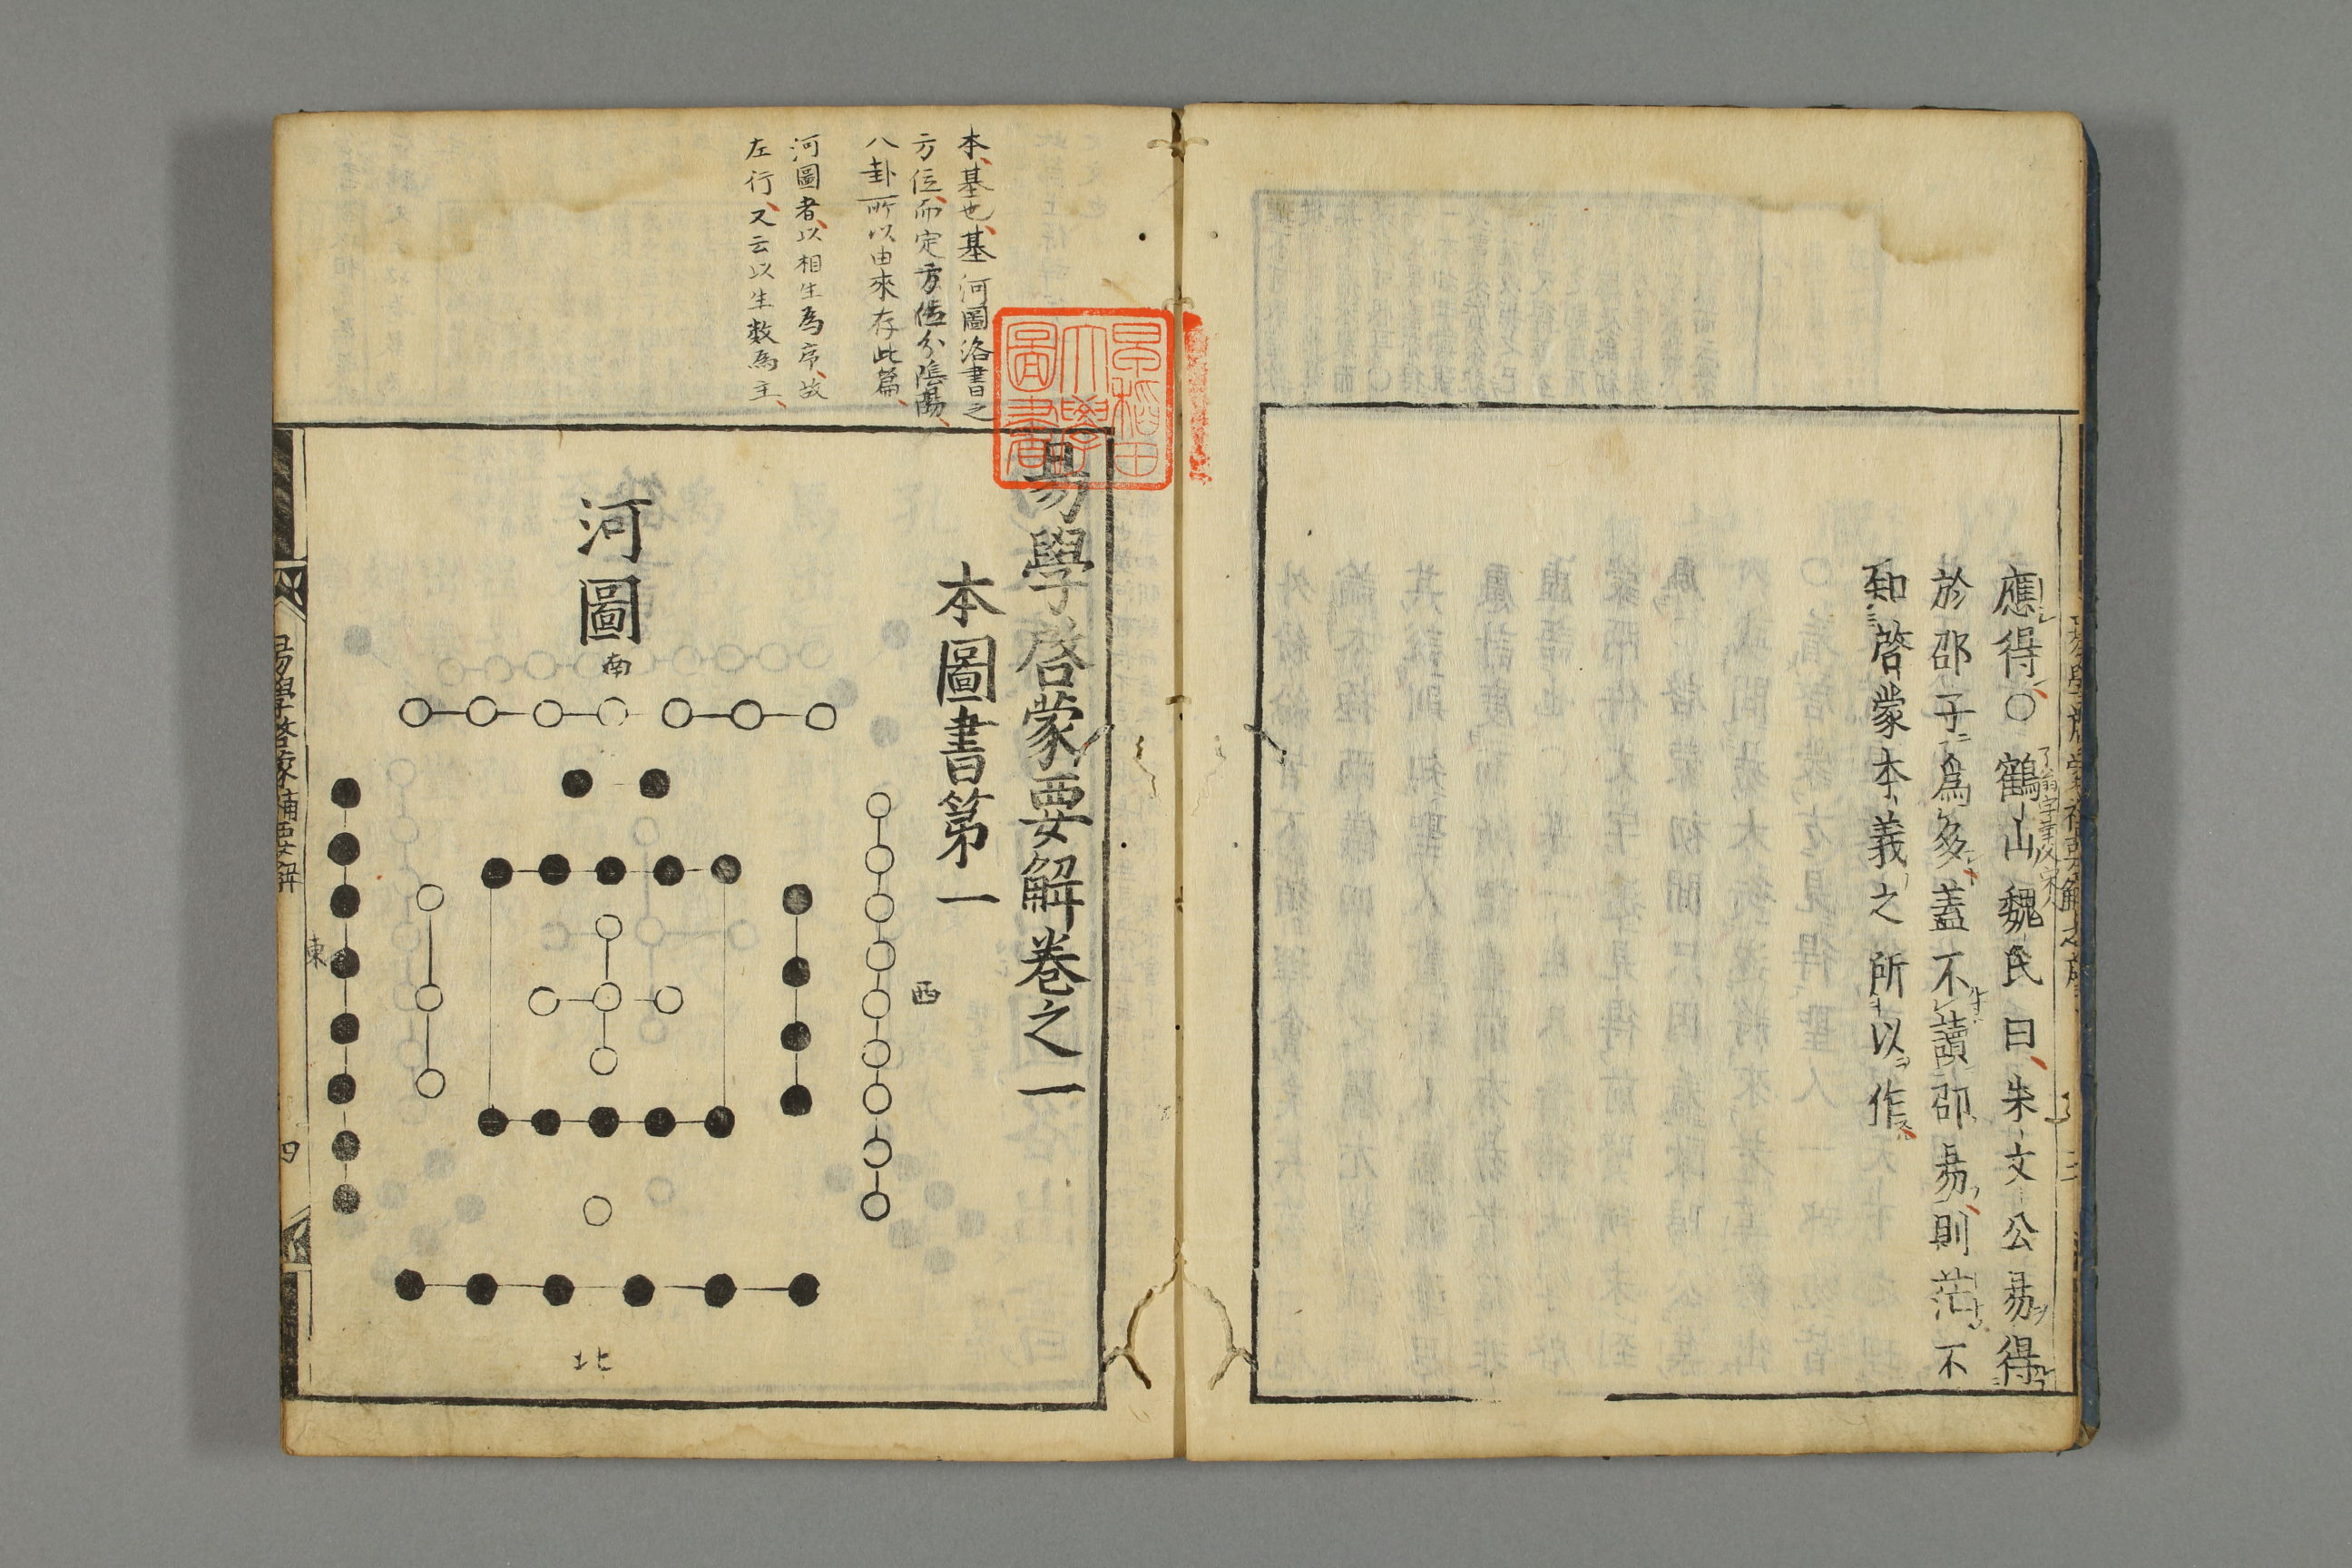 應得○鶴山魏氏曰朱文公易得
於邵子爲多蓋不讀邵易則茫不
知啓蒙本義之所以作
本基也基河圖洛書之
方位而定方位分陰陽
八卦所以由來存此篇
河圖者以相生爲序故
左行又云以生数為主
早稻田
大學
圖書
易學啓蒙要解卷之一
本圖書第一
河圖
南
西
東
北
易學啓蒙補要解
四